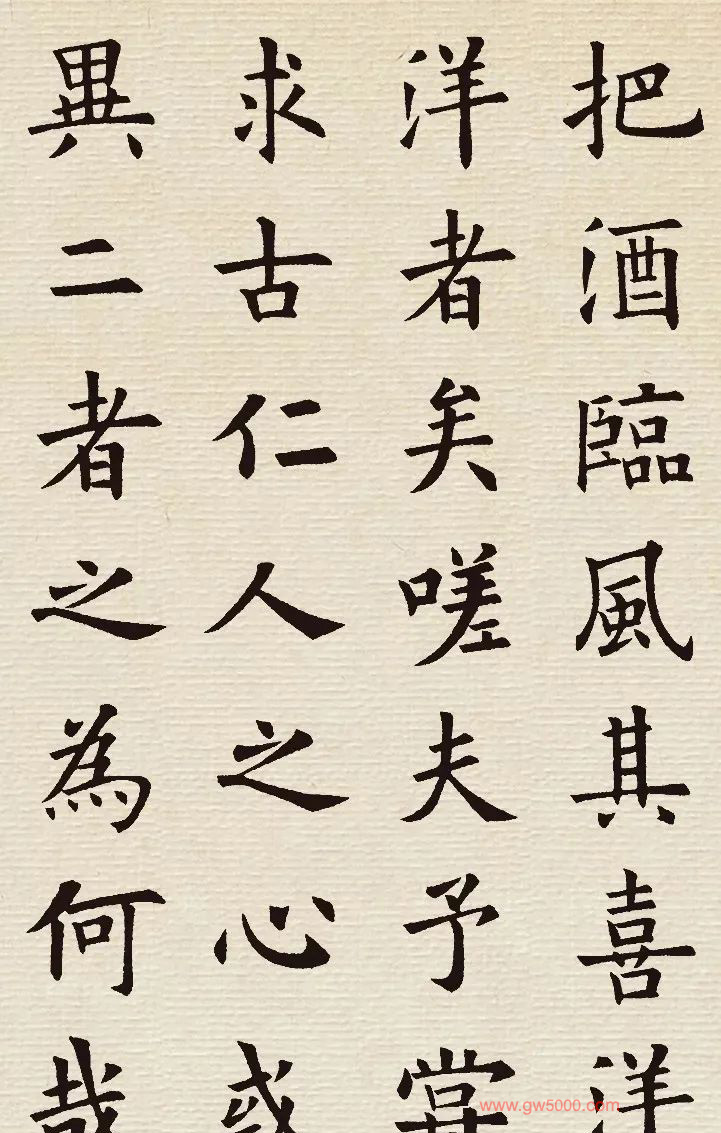 把酒臨風其喜洋
洋者矣嗟夫予嘗
求古仁人之心或
異二者之為何哉
www.gw5000.com